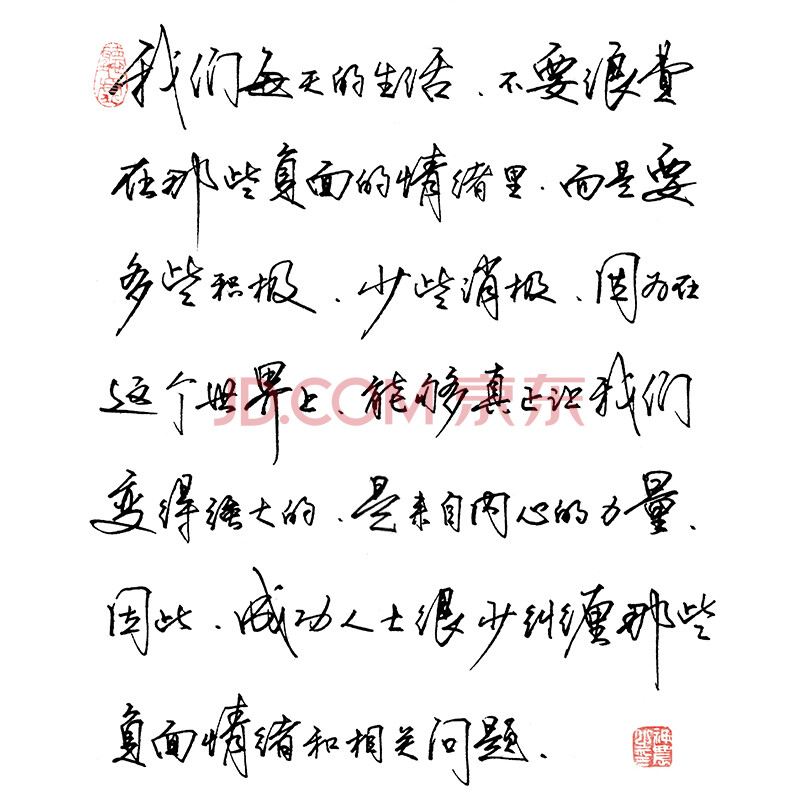 我们每天的生活、不要浪费
在那些负面的情绪里、而是要
多些积极、少些消极、因为在
这个世界上、能够真正让我们
JD.COM 京东
变得强大的、是来自内心的力量、
因此、成功人士很少纠缠那些
负面情绪和相关问题.